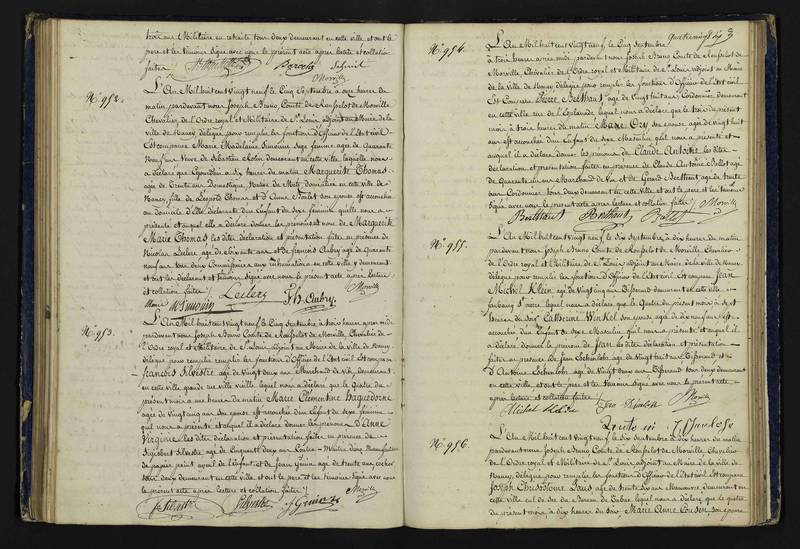 trois ans Militaire en retraite tous deux demeurant en cette ville et ont le
pere et les temoins signé avec nous le présent acte après lecture et collation
faites
Morville
N.° 952.
L'An Mil huit cent Vingt neuf le Cinq Septembre à onze heures du
matin, pardevant nous Joseph Bruno Comte de Morville
Chevalier de l'Ordre royal et Militaire de St Louis, adjoint au Maire de la
ville de Nancy délégué pour remplir les fonctions d'Officier de l'Etat civil
Est comparue Marie Madeleine Simonin Sage femme agée de Quarante
Neuf ans Veuve de Sébastien demeurant en cette ville, laquelle nous
a déclaré que à Six heures du matin Marguerite Thomas
agée de Trente ans Domestique, Native de Metz, domiciliée en cette ville de
Nancy, fille de Léopold Thomas et d'Anne est accouchée
au domicile d'Elle déclarante d'un Enfant du Sexe féminin quelle nous a
présenté et auquel elle a déclaré donner les prénoms et nom de Marguerite
Marie Thomas, les dites déclaration et présentation faites en présence de
Nicolas Leclerc agé de ans et de François Aubry agé de Quarante
neuf ans tous deux en cette ville y demeurant
et ont les déclarant et témoins signé avec nous le présent acte après lecture
et collation faites
Morville
Simonin Leclerc Fh. Aubry
N.° 953.
L'An Mil huit cent Vingt neuf le Cinq Septembre à trois heures après midi
pardevant nous Joseph Bruno Comte de Morville Chevalier de
l'Ordre royal et Militaire de St Louis, adjoint au Maire de la Ville de Nancy
délégué pour remplir les fonctions d'Officier de l'Etat civil Est comparu
François Silvestre agé de Vingt deux ans Marchand de Vin, demeurant
en cette ville grande rue ville vieille, lequel nous a déclaré que le Quatre du
présent mois à une heure du matin Marie Clémentine Haguedorne
agée de Vingt cinq ans son épouse est accouchée d'un Enfant du Sexe féminin
qu'il nous a présenté et auquel il a déclaré donner les prénoms D'Anne
Virginie les dites déclaration et présentation faites en présence de
Silvestre agé de Cinquante deux ans
de papier peint ayeul de l'Enfant et de Jean agé de trente ans cocher,
tous deux demeurant en cette ville et ont le pere et les témoins signé avec nous
le présent acte après lecture et collation faites
Morville
Silvestre Silvestre
N.° 954.
L'An Mil huit cent Vingt neuf le Cinq Septembre
à trois heures après midi pardevant nous Joseph Bruno Comte de
Morville, Chevalier de l'Ordre royal et Militaire de St Louis, adjoint au Maire
de la Ville de Nancy délégué pour remplir les fonctions d'Officier de l'Etat civil
Est Comparu Pierre Berthaut agé de Vingt huit ans Cordonnier, demeurant
en cette ville rue de l'Esplanade lequel nous a déclaré que le trois du présent
mois à trois heures du matin Marie Ory son épouse agée de Vingt huit
ans est accouchée d'un Enfant du Sexe Masculin qu'il nous a présenté et
auquel il a déclaré donner les prénoms de Claude Antoine les dites
déclaration et présentation faites en présence de Claude Antoine agé
de Quarante six ans Marchand de Vin et de Berthaut agé de trente
ans Cordonnier tous deux demeurant en cette ville et ont le pere et les témoins
signé avec nous le présent acte après lecture et collation faites
Morville
Berthaut Berthaut
N.° 955.
L'An Mil huit cent Vingt neuf le Six Septembre, à dix heures du matin
pardevant nous Joseph Bruno Comte de Morville, Chevalier
de l'Ordre royal et Militaire de St Louis, adjoint au Maire de la Ville de Nancy,
délégué pour remplir les fonctions d'Officier de l'Etat civil Est comparu Jean
Michel Klein agé de Vingt cinq ans Tisserand demeurant en cette ville
faubourg St pierre lequel nous a déclaré que le Quatre du présent mois à sept
heures du soir Catherine Winkel son épouse agée de dix neuf ans est
accouchée d'un Enfant du Sexe Masculin qu'il nous a présenté et auquel il
a déclaré donner le prénom de Jean les dites déclaration et présentation
faites en présence de Jean agé de Vingt huit ans Tisserand et
d'Antoine agé de Vingt deux ans Tisserand tous deux demeurant
en cette ville, et ont le pere et les témoins signé avec nous le présent acte
après lecture et collation faites
Morville
N.° 956.
L'An Mil huit cent Vingt neuf le Six Septembre à dix heures du matin
pardevant nous Joseph Bruno Comte de Morville Chevalier
de l'Ordre royal et Militaire de St Louis, adjoint au Maire de la ville de
Nancy, délégué pour remplir les fonctions d'Officier de l'Etat civil Est comparu
Joseph Chrisostome agé de trente Six ans Manœuvre demeurant en
cette ville cul de sac du Bureau de Tabac lequel nous a déclaré que le quatre
du présent mois, à dix heures du soir, Marie Anne Cousin, son épouse